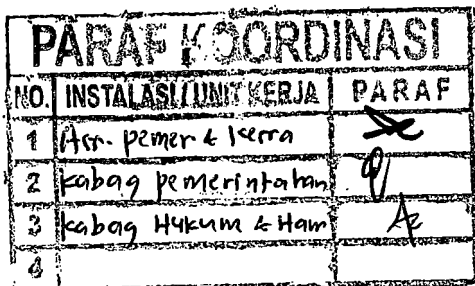 PARAF KOORDINASI
NO. INSTALASI/UNIT KERJA PARAF
1 Ass. pemer & kesra
2 kabag pemerintahan
3 kabag Hukum & Ham
4